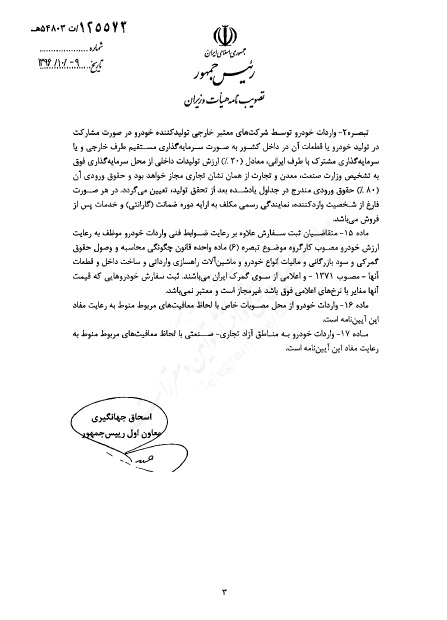 ۱۲۵۵۷۲/ت۵۴۸۰۳هـ
شماره
تاریخ ۱۳۹۶/۱۰/۰۹
جمهوری اسلامی ایران
رئیس جمهور
تصویب نامه هیأت وزیران
تبصره۲- واردات خودرو توسط شرکت‌های معتبر خارجی تولیدکننده خودرو در صورت مشارکت
در تولید خودرو یا قطعات آن در داخل کشور به صورت سرمایه‌گذاری مستقیم طرف خارجی و یا
سرمایه‌گذاری مشترک با طرف ایرانی، معادل (۲۰٪) ارزش تولیدات داخلی از محل سرمایه‌گذاری فوق
به تشخیص وزارت صنعت، معدن و تجارت از همان نشان تجاری مجاز خواهد بود و حقوق ورودی آن
(۸۰٪) حقوق ورودی مندرج در جداول یادشده بعد از تحقق تولید، تعیین می‌گردد. در هر صورت
فارغ از شخصیت واردکننده، نمایندگی رسمی مکلف به ارایه دوره ضمانت (گارانتی) و خدمات پس از
فروش می‌باشد.
ماده ۱۵- متقاضیان ثبت سفارش علاوه بر رعایت ضوابط فنی واردات خودرو موظف به رعایت
ارزش خودرو مصوب کارگروه موضوع تبصره (۶) ماده واحده قانون چگونگی محاسبه و وصول حقوق
گمرکی و سود بازرگانی و مالیات انواع خودرو و ماشین‌آلات راهسازی وارداتی و ساخت داخل و قطعات
آنها - مصوب ۱۳۷۱ - و اعلامی از سوی گمرک ایران می‌باشند. ثبت سفارش خودروهایی که قیمت
آنها مغایر با نرخ‌های اعلامی فوق باشد غیرمجاز است و معتبر نمی‌باشد.
ماده ۱۶- واردات خودرو از محل مصوبات خاص با لحاظ معافیت‌های مربوط منوط به رعایت مفاد
این آیین‌نامه است.
ماده ۱۷- واردات خودرو به مناطق آزاد تجاری- صنعتی با لحاظ معافیت‌های مربوط منوط به
رعایت مفاد این آیین‌نامه است.
اسحاق جهانگیری
معاون اول رییس‌جمهور
۳